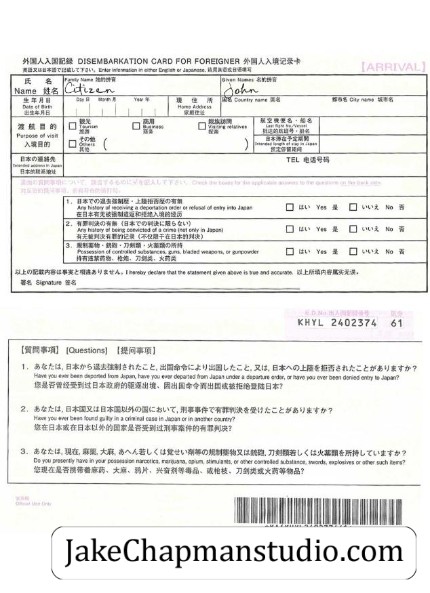 外国人入国記録 DISEMBARKATION CARD FOR FOREIGNER 外国人入境记录卡
[ARRIVAL]
英語又は日本語で記載して下さい。 Enter information in either English or Japanese.
氏 名
Name 姓名
Family Name 姓的拼音
Citizen
Given Names 名的拼音
John
生年月日
Date of Birth
出生年月日
Day 日 Month 月 Year 年
現 住 所
Home Address
国名 Country name 国名
都市名 City name 城市名
渡航目的
Purpose of visit
入境目的
観光
Tourism
旅游
商用
Business
商务
親族訪問
Visiting relatives
探亲
その他
Others
其他
(
航空機便名・船名
Last flight No./Vessel
抵达航班号・船名
日本滞在予定期間
Intended length of stay in Japan
预定停留期间
日本の連絡先
Intended address in Japan
日本的联系地址
TEL 电话号码
Check the boxes for the applicable answers to the questions on the back side.
1. 日本での退去強制歴・上陸拒否歴の有無
Any history of receiving a deportation order or refusal of entry into Japan
在日本有无被强制遣返和拒绝入境的经历
はい Yes 是
いいえ No 否
2. 有罪判決の有無 (日本での判決に限らない)
Any history of being convicted of a crime (not only in Japan)
有无被判决有罪的记录 (不仅限于在日本的判决)
はい Yes 是
いいえ No 否
3. 規制薬物・銃砲・刀剣類・火薬類の所持
Possession of controlled substances, guns, bladed weapons, or gunpowder
持有违禁药物、枪炮、刀剑类、火药类
はい Yes 是
いいえ No 否
以上の記載内容は事実と相違ありません。 I hereby declare that the statement given above is true and accurate. 以上所填内容属实无误。
署名 Signature 签名
KHYL 2402374 61
【質問事項】 [Questions] 【提问事项】
1. あなたは、日本から退去強制されたこと、出国命令により出国したこと、又は、日本への上陸を拒否されたことがありますか？
Have you ever been deported from Japan, have you ever departed from Japan under a departure order, or have you ever been denied entry to Japan?
您是否曾经受到过日本政府的驱逐出境、因出国命令而出国或被拒绝登陆日本？
2. あなたは、日本国又は日本国以外の国において、刑事事件で有罪判決を受けたことがありますか？
Have you ever been found guilty in a criminal case in Japan or in another country?
您在日本或在日本以外的国家是否受到过刑事案件的有罪判决？
3. あなたは、現在、麻薬、大麻、あへん若しくは覚せい剤等の規制薬物又は銃砲、刀剣類若しくは火薬類を所持していますか？
Do you presently have in your possession narcotics, marijuana, opium, stimulants, or other controlled substance, swords, explosives or other such items?
您现在是否携带着麻药、大麻、鸦片、兴奋剂等毒品、或枪枝、刀剑类或火药等物品？
Official Use Only
JakeChapmanstudio.com